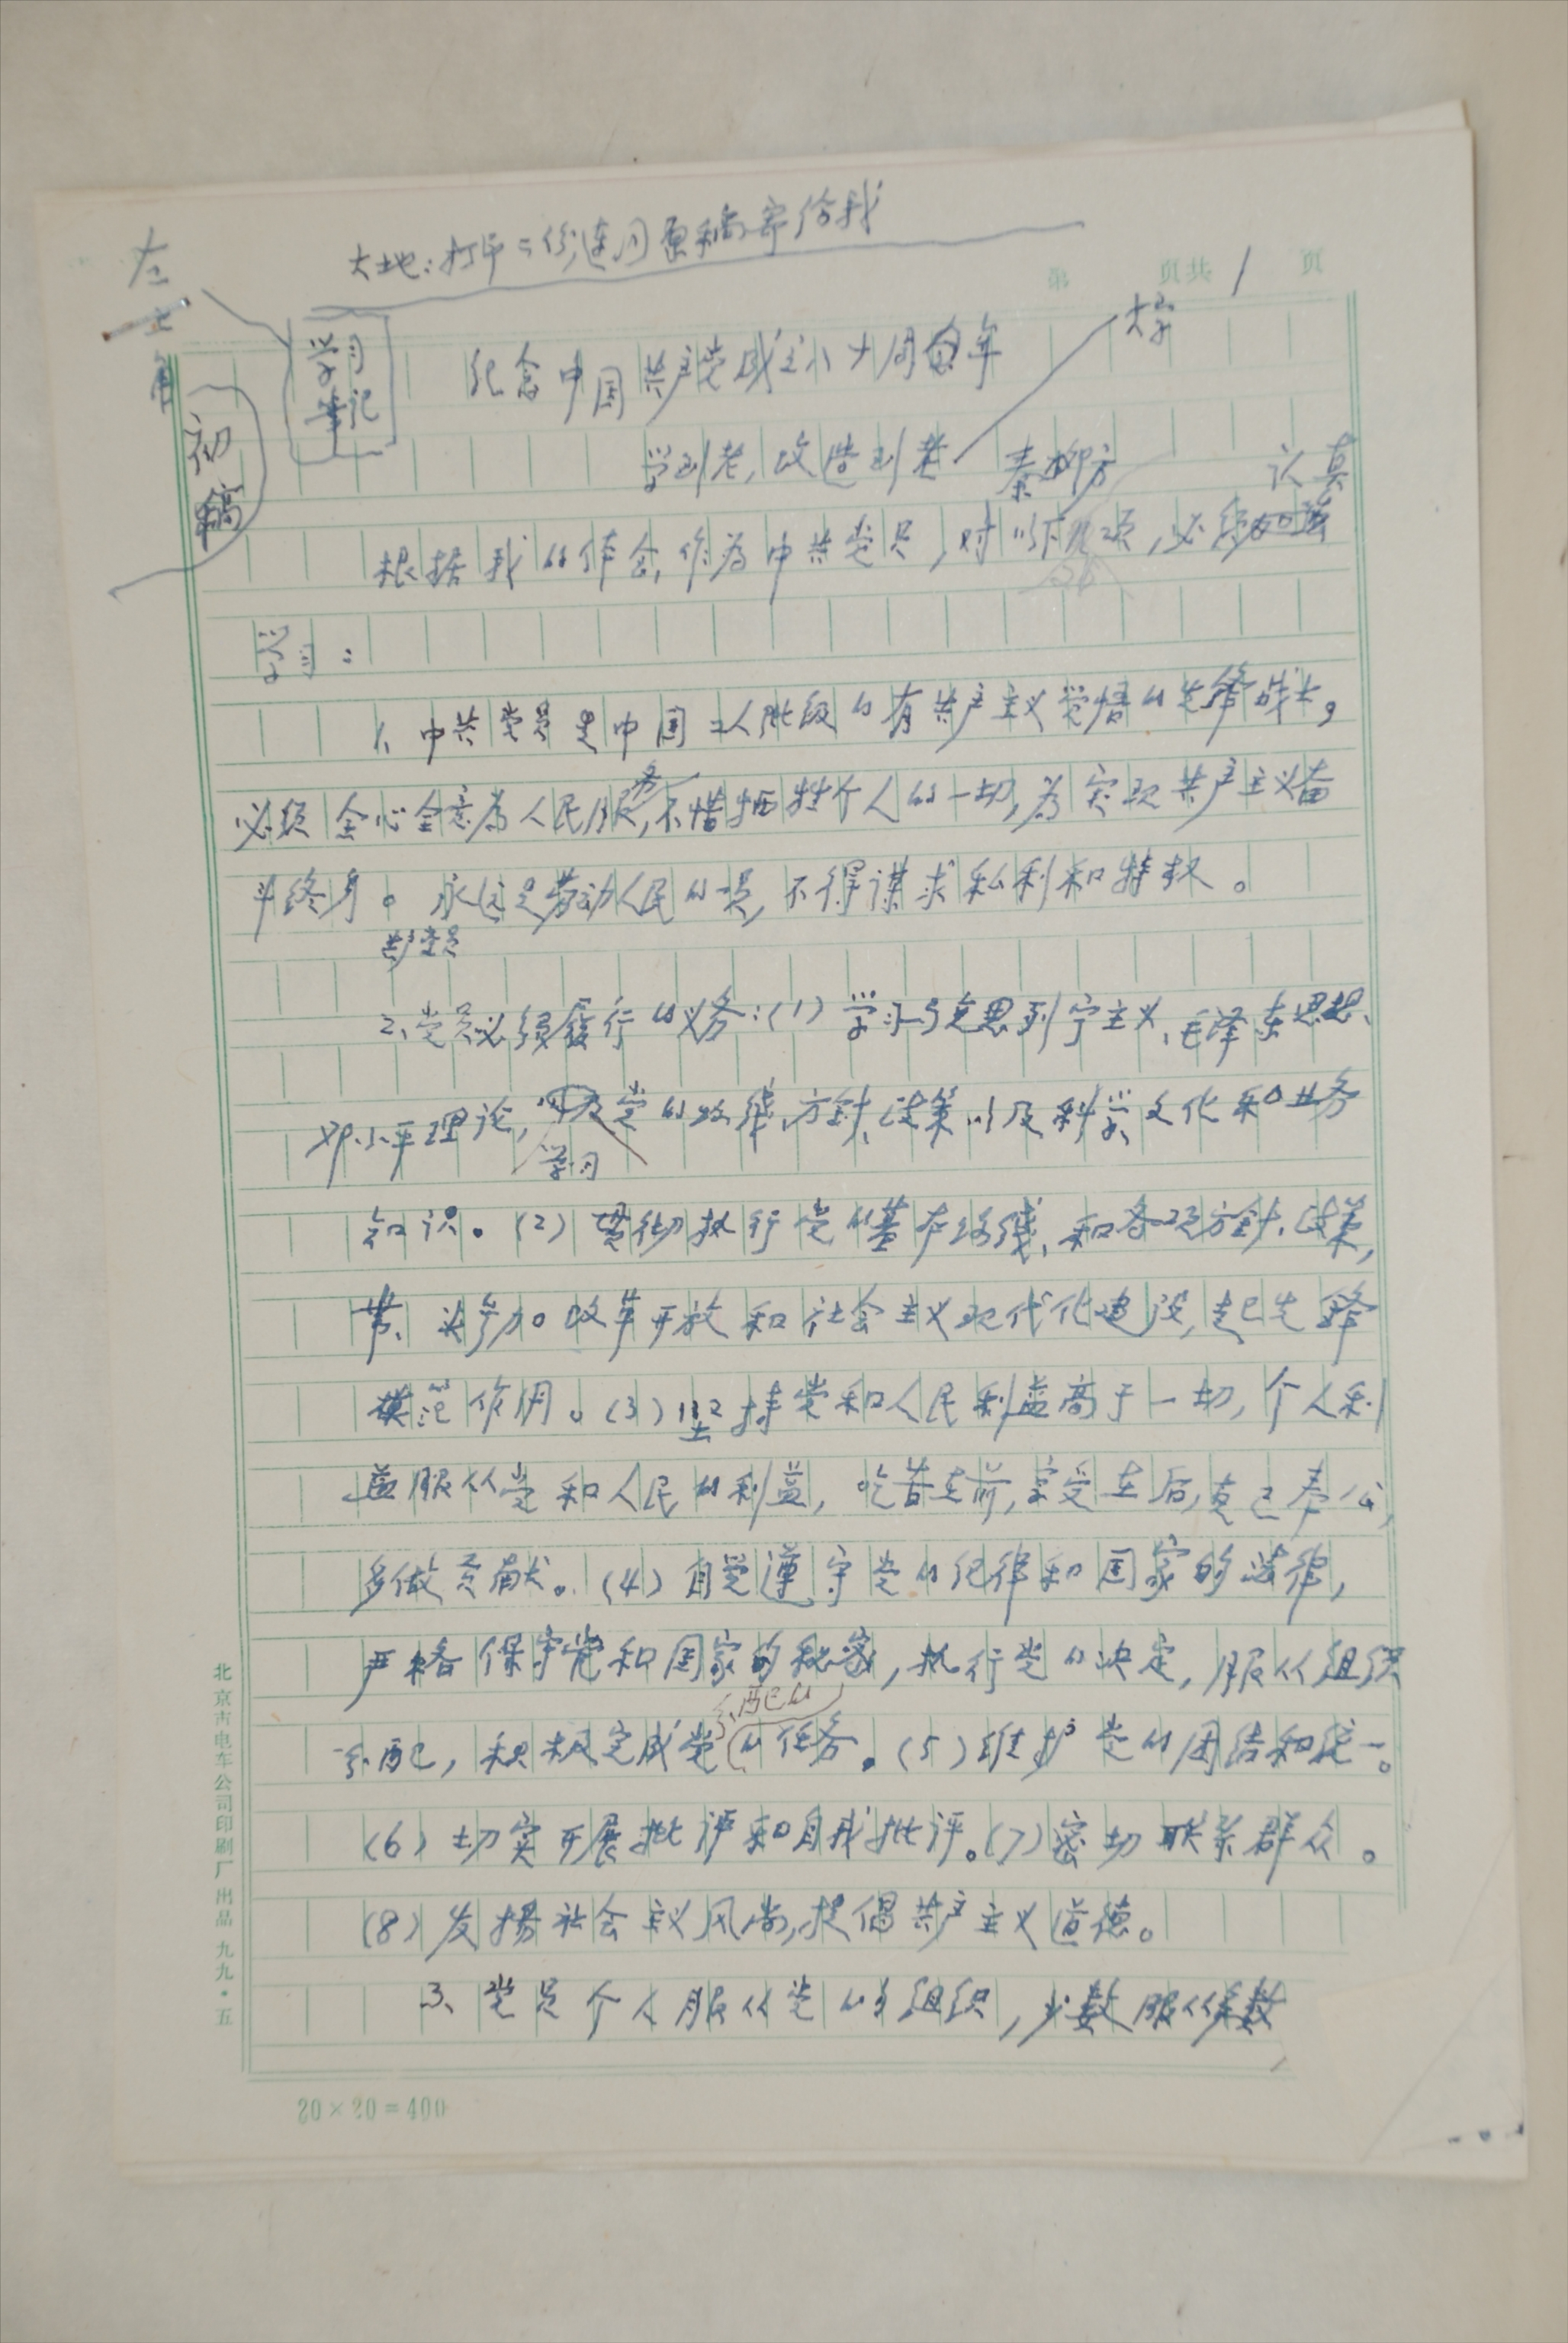 大地：打印二份连同原稿寄给我
左上角
第 页共 1 页
大字
学习笔记
初稿
纪念中国共产党成立八十周年
学到老，改造到老 秦柳方
认真
根据我的体会，作为中共党员，对以下项，必须
学习：
1、中共党员是中国工人阶级的有共产主义觉悟的先锋战士，
必须全心全意为人民服务，不惜牺牲个人的一切，为实现共产主义奋
斗终身。永远是劳动人民的一员，不得谋求私利和特权。
共产党员
2、党员必须履行的义务：（1）学习马克思列宁主义、毛泽东思想、
邓小平理论，学习党的路线、方针、政策以及科学、文化和业务
知识。（2）贯彻执行党的基本路线、和各项方针、政策，
带头参加改革开放和社会主义现代化建设，起先锋
模范作用。（3）坚持党和人民利益高于一切，个人利
益服从党和人民的利益，吃苦在前，享受在后，克己奉公，
多做贡献。（4）自觉遵守党的纪律和国家的法律，
严格保守党和国家的秘密，执行党的决定，服从组织
分配，积极完成党分配的任务。（5）维护党的团结和统一。
（6）切实开展批评和自我批评。（7）密切联系群众。
（8）发扬社会主义风尚，提倡共产主义道德。
3、党员个人服从党的组织，少数服从多数
北京市电车公司印刷厂出品 九九·五
20×20=400